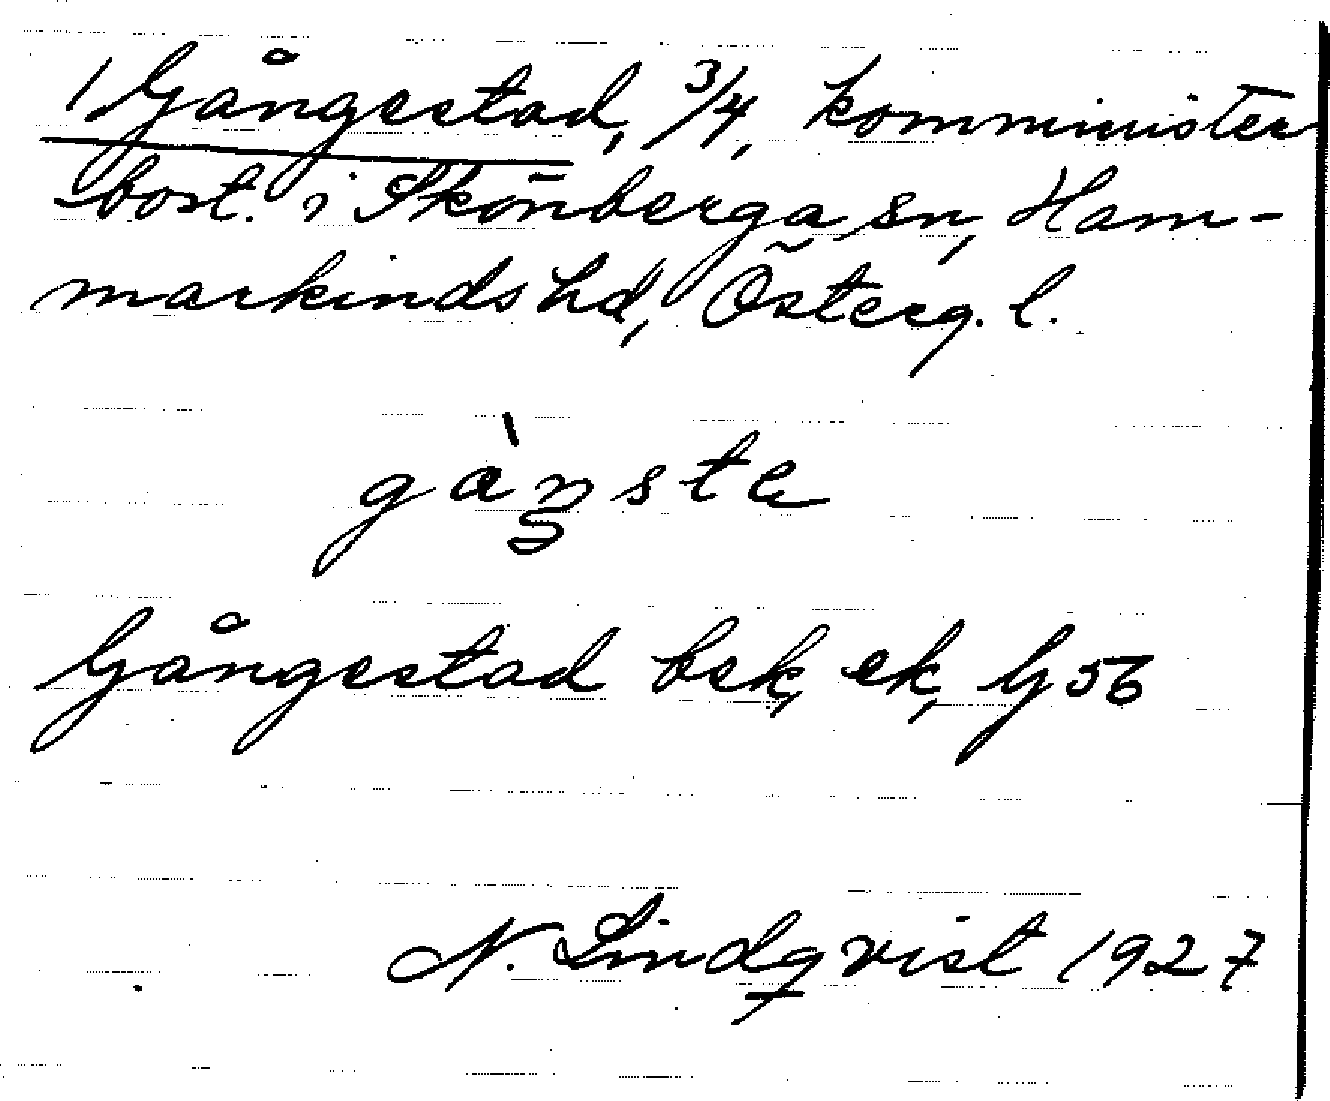 1 Gångestad, 3/4, komminister
-bost. i Skönberga sn, Ham-
markinds hd, Österg. l.
gàŋste
Gångestad bek, ek, G 56
N. Lindqvist 1927